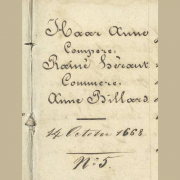 Haar Anne
Compere.
René Héraut
Commere.
Anne Billard.
14 Octobre 1668
N: 5.